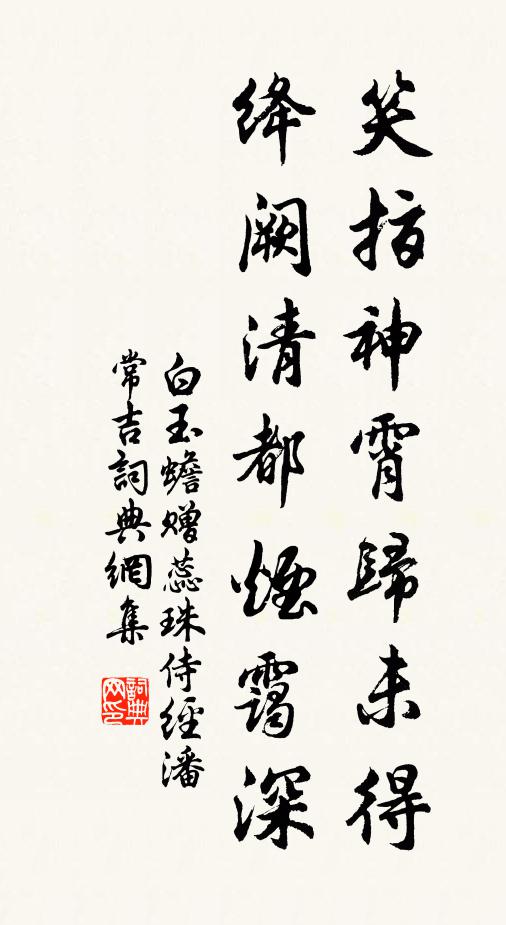 笑指神霄歸未得
絳闕清都煙靄深
白玉蟾贈蕊珠侍經潘
常吉詞典網集
詞典網印